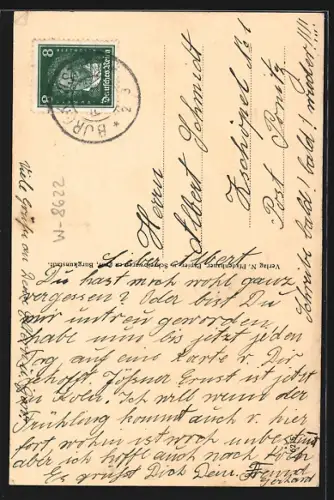 8 Deutsches Reich 8
BURG
Herrn
Albert Schmidt
Zschöpel No 1
Post Ponitz
Schreibe bald! bald! wieder!!!!
W-8622
Viele Grüße an Deine
Lieber Albert
Du hast mich wohl ganz
vergessen? Oder bist Du
mir untreu geworden,
habe nun bis jetzt jeden
Tag auf eine Karte v. Dir
gehofft. Ernst ist jetzt
in Köln. Ich will wenn der
Frühling kommt auch v. hier
fort wohin ist noch unbestimmt
aber ich hoffe auch nach Köln
Es grüßt Dich Dein Freund
Gerhard